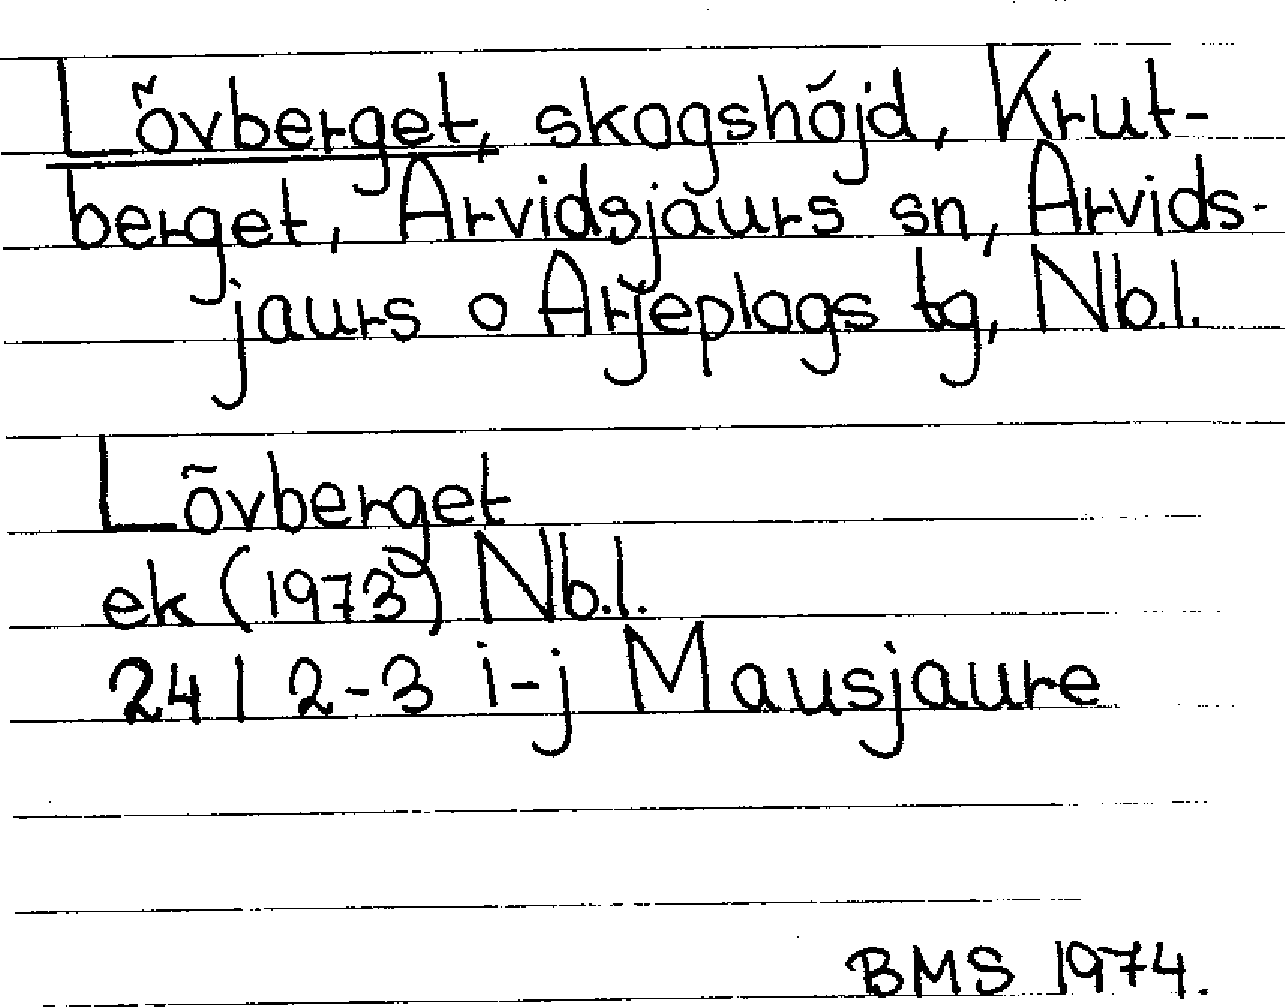 Lövberget, skogshöjd, Krut-
berget, Arvidsjaurs sn, Arvids-
jaurs o Arjeplogs tg, Nb.l.
Lövberget
ek (1973) Nb.l.
24 I 2-3 i-j Mausjaure
BMS 1974.